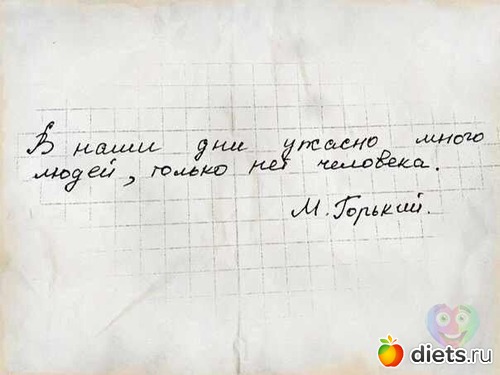 В наши дни ужасно много
людей, только нет человека.
М. Горький.
diets.ru